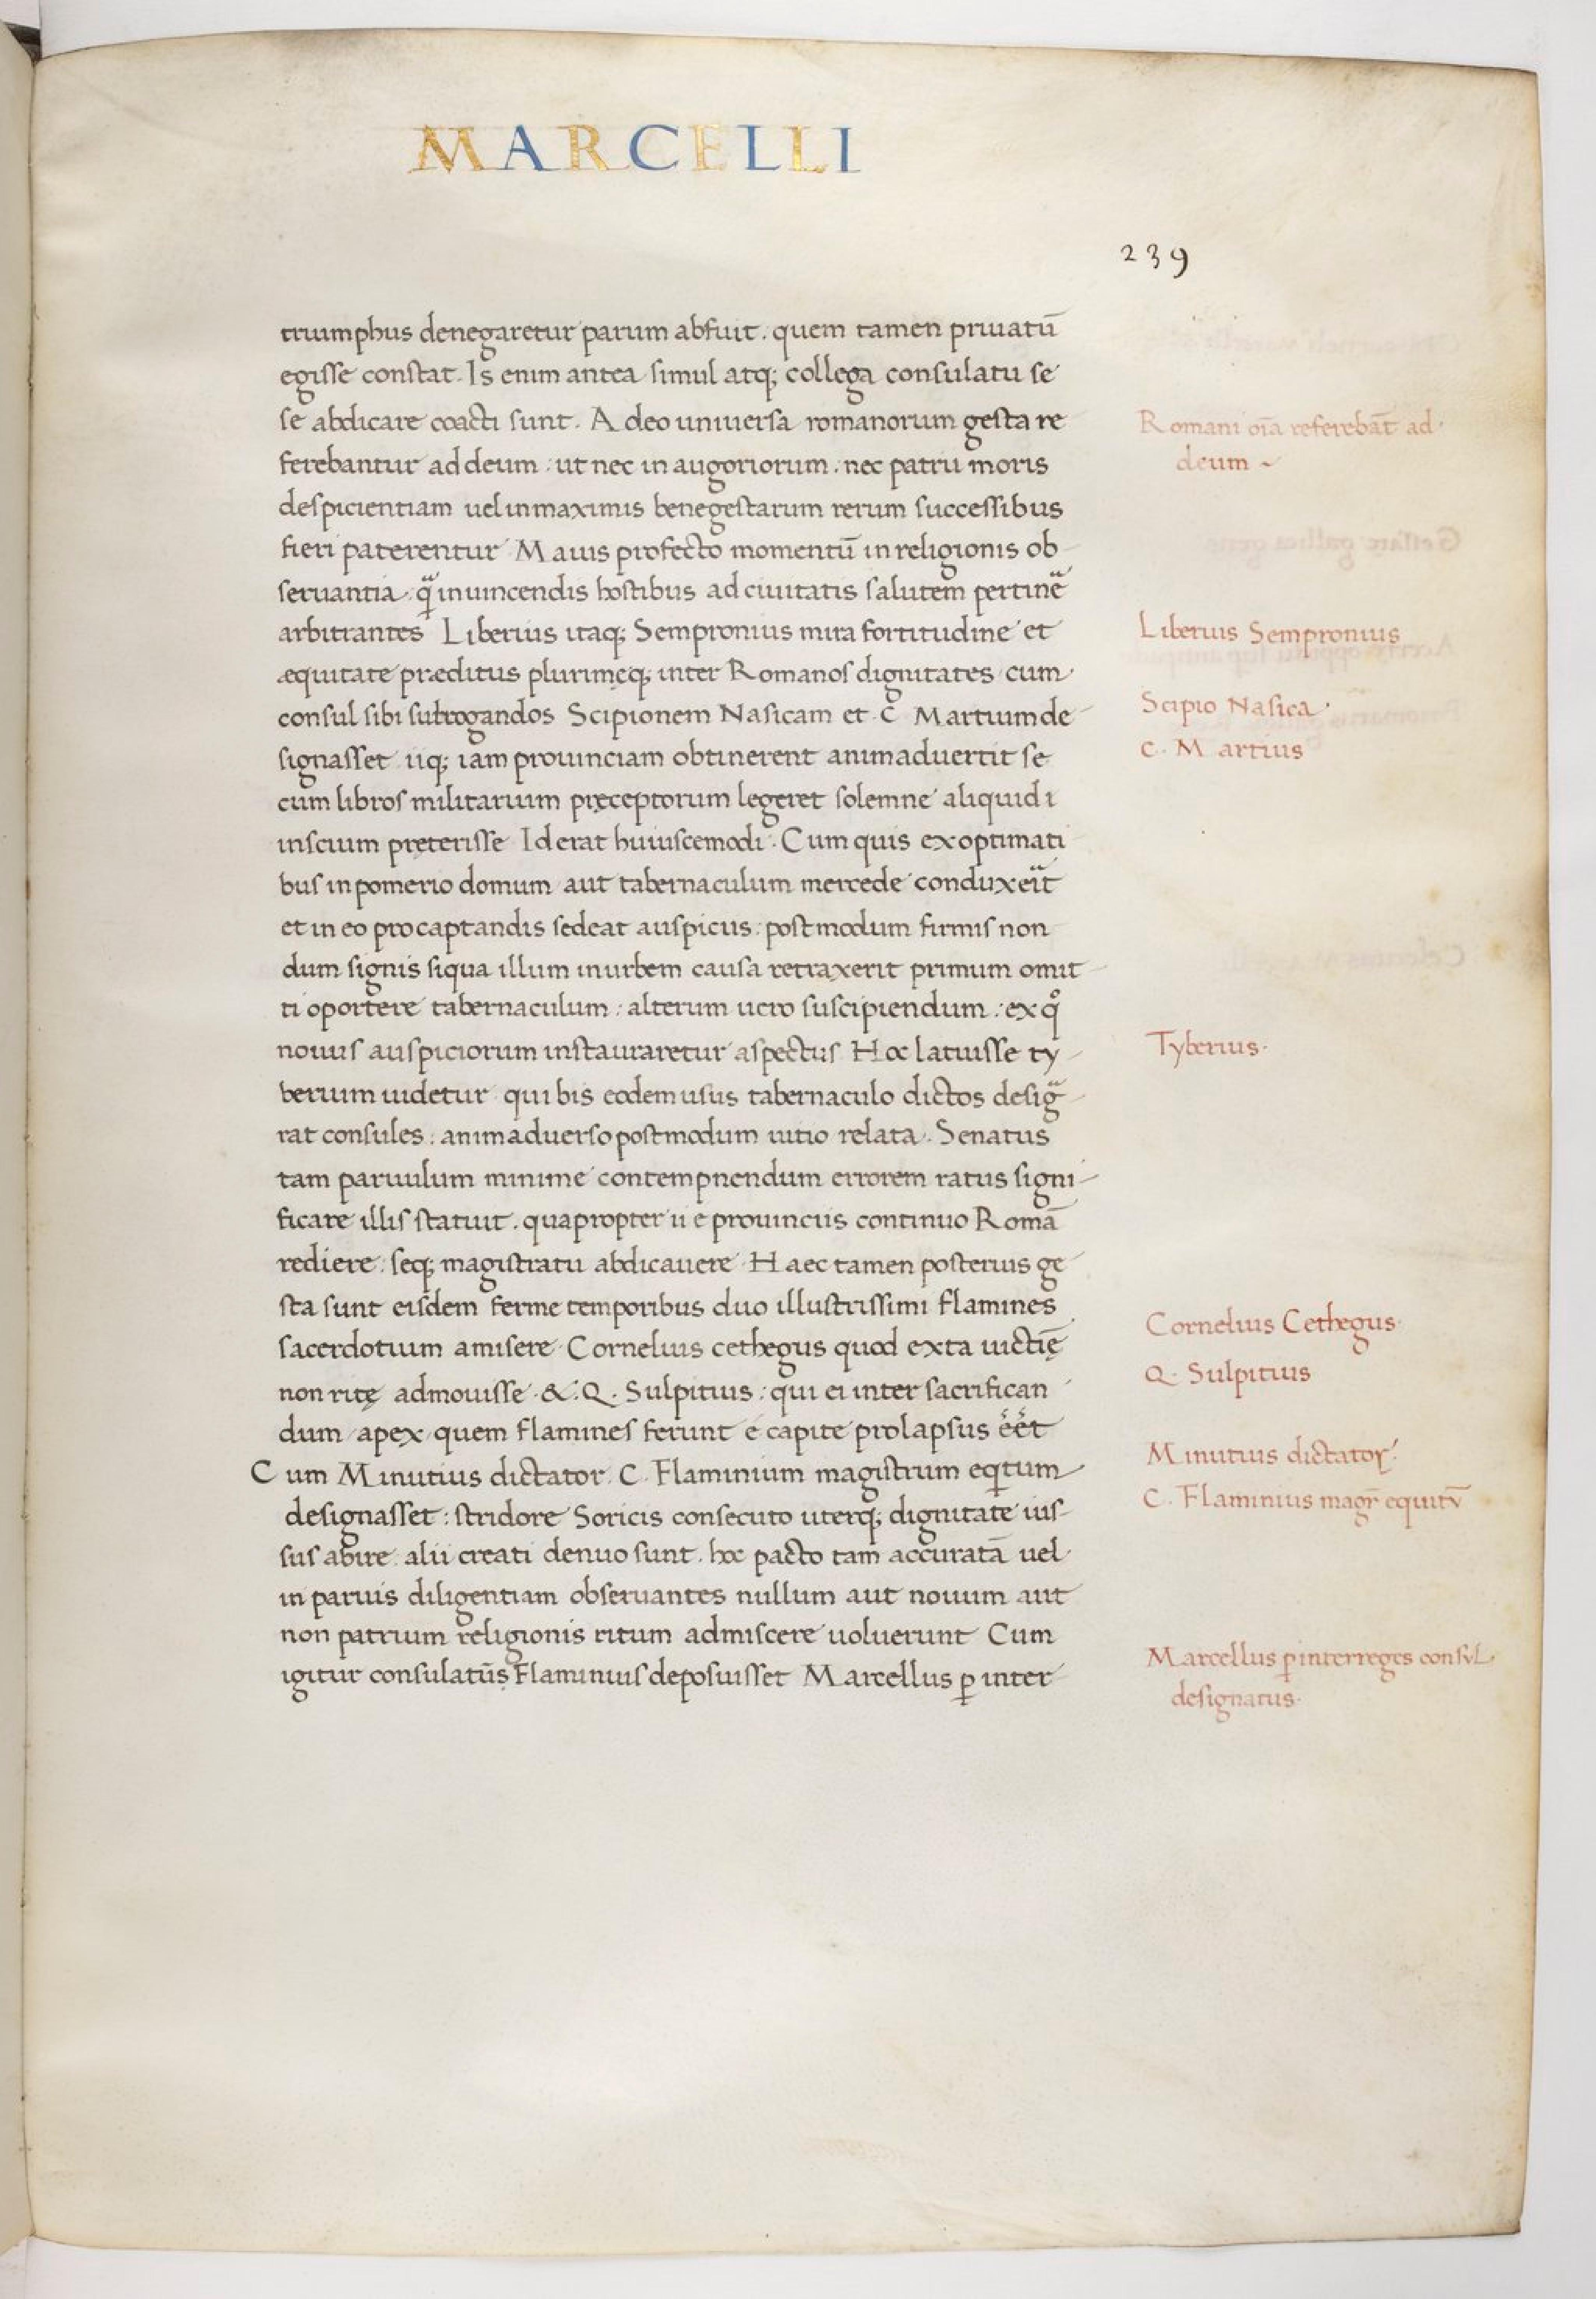 MARCELLI
239
triumphus denegaretur parum abfuit. quem tamen priuatū
egisse constat. Is enim antea simul atq; collega consulatu se
se abdicare coacti sunt. Adeo uniuersa romanorum gesta re
ferebantur ad deum: ut nec in augoriorum: nec patrii moris
despicientiam uel in maximis benegestarum rerum successibus
fieri paterentur Maius profecto momentū in religionis ob-
seruantia: q̃ in uincendis hostibus ad ciuitatis salutem pertinē
arbitrantes Liberius itaq; Sempronius mira fortitudine et
æquitate præditus plurimęq; inter Romanos dignitates cum
consul sibi subrogandos Scipionem Nasicam et C Martium de-
signasset iiq; iam prouinciam obtinerent animaduertit se
cum libros militarium pręceptorum legeret solemne aliquid i
inscium pręterisse Id erat huiuscemodi. Cum quis ex optimati
bus in pomerio domum aut tabernaculum mercede conduxeit
et in eo pro captandis sedeat auspiciis: postmodum firmis non
dum signis siqua illum in urbem causa retraxerit primum omit-
ti oportere tabernaculum: alterum uero suscipiendum: ex qͦ
nouus auspiciorum instauraretur aspectus Hoc latuisse ty-
berium uidetur qui bis eodem usus tabernaculo dictos desig-
rat consules: animaduerso postmodum uitio relata. Senatus
tam paruulum minime contempnendum errorem ratus signi-
ficare illis statuit. quapropter ii e prouinciis continuo Romā
rediere: seq; magistratu abdicauere Haec tamen posterius ge
sta sunt eisdem ferme temporibus duo illustrissimi flamines
sacerdotium amisere Cornelius cethegus quod exta uictię
non ritę admouisse &. Q. Sulpitius: qui ei inter sacrifican
dum apex quem flamines ferunt e capite prolapsus eet
Cum Minutius dictator. C. Flaminium magistrum eqitum
designasset: stridore Soricis consecuto uterq; dignitate ius-
sus abire: alii creati denuo sunt. hoc pacto tam accuratā uel
in paruis diligentiam obseruantes nullum aut nouum aut
non patrium religionis ritum admiscere uoluerunt Cum
igitur consulatūs Flaminius deposuisset Marcellus ꝑ inter
Romani oīa referebāt ad
deum ~
Liberius Sempronius
Scipio Nasica.
C. Martius
Tyberius.
Cornelius Cethegus.
Q. Sulpitius
Minutius dictator.
C. Flaminius magr̄ equitv̄
Marcellus ꝑ interreges consvl
designatus.